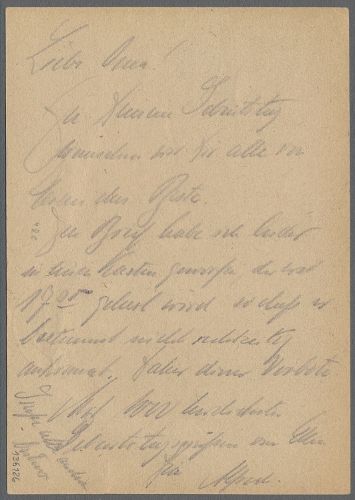 Liebe Oma!
Zu Deinem Geburtstag
wünschen wir Dir alle von
Herzen das Beste.
Den Brief habe ich leider
in einen Kasten geworfen, der erst
17 geleert wird so daß er
bestimmt nicht rechtzeitig
ankommt. Daher dieser Vorbote
mit 1000 herzlichsten
Geburtstagsgrüßen von Allen
Dein Alfred.
136126